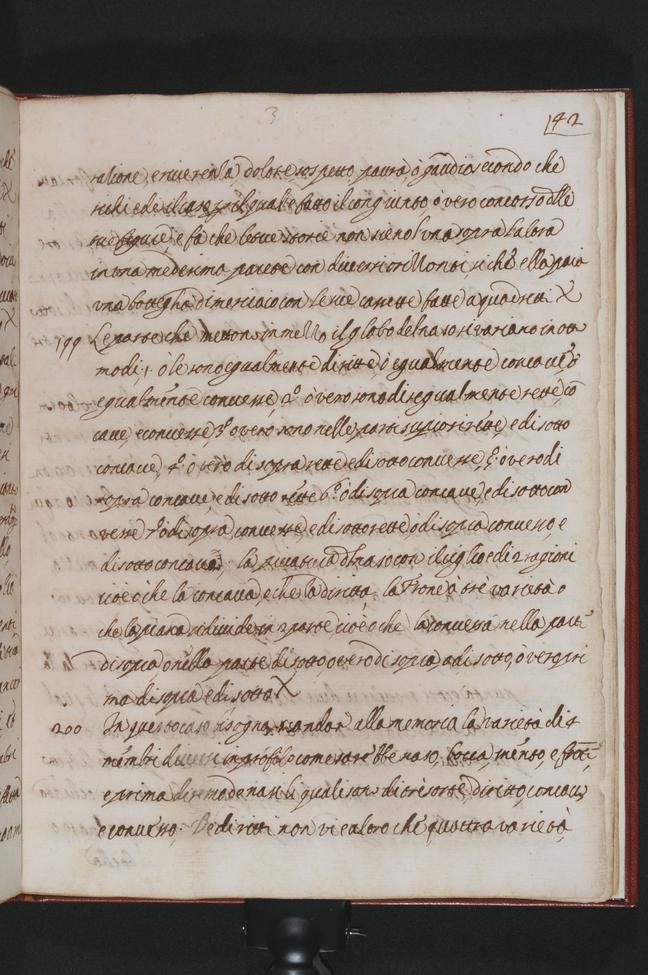 3
142
ratione, e riverenza dolore sospetto paura ò gaudio secondo che
richiede il caso p il quale è fatto il congiunto ò vero concorso alle
tue figure, e fà che le tue storie non sieno l'una sopra l'altra
in una medesima parete con diversi orizzonti si che ella paia
una bottegha di merciaio con le sue cassette fatte a quadretti X
199 Le parte che mettono in mezzo il globo del naso si variano in otto
modi, 1. ò le sono egualmente diritte, ò egualmente concave, ò
egualmente convesse, 2.º ò vero sono disegualmente rette, cō
cave, e convesse, 3.º ò vero sono nelle parti superiori rette, e di sotto
concave, 4.º ò vero di sopra rette e di sotto convesse, 5.º ò vero di
sopra concave, e di sotto rette 6.º ò di sopra concave, e di sotto con
vesse 7.º ò di sopra convesse e di sotto rette ò di sopra convesso, e
di sotto concave: la del naso con il ciglio è di 2 ragioni
cioè ò che la è concava, e che la è diritta, la fronte à tre varietà ò
che la è piana si divide in 2 parte cioè ò che la è convessa nella parte
di sopra ò nella parte di sotto, ò vero di sopra a di sotto, ò vero pri
ma di sopra e di sotto X
200 In questo caso bisogna mandar alla memoria la varietà di 4
membri diversi in profilo come sarebbe naso, bocca, mento, e fronte,
e prima diremo de nasi li quali son di trè sorte, diritto, concavo,
e convesso. De diritti non vi è altro che quattro varietà,